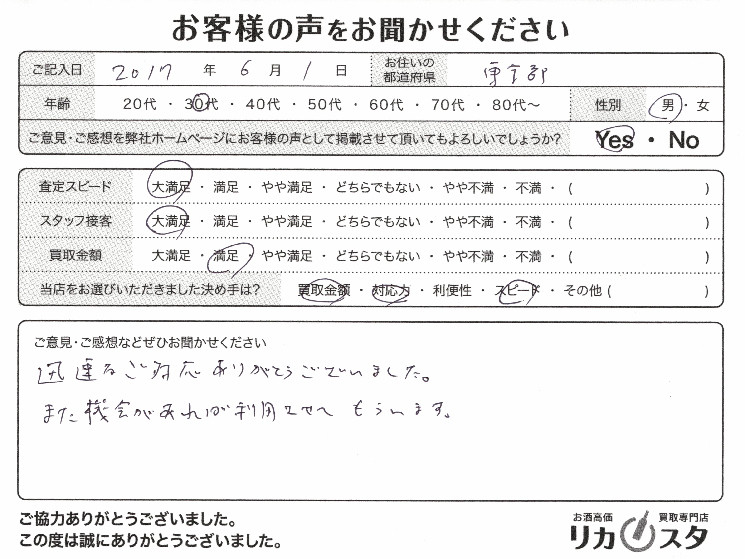 お客様の声をお聞かせください
ご記入日 2017 年 6 月 1 日 お住いの都道府県
年齢 20代 ・ 30代 ・ 40代 ・ 50代 ・ 60代 ・ 70代 ・ 80代〜 性別 男 ・ 女
ご意見・ご感想を弊社ホームページにお客様の声として掲載させて頂いてもよろしいでしょうか? Yes ・ No
査定スピード 大満足 ・ 満足 ・ やや満足 ・ どちらでもない ・ やや不満 ・ 不満 ・ ( )
スタッフ接客 大満足 ・ 満足 ・ やや満足 ・ どちらでもない ・ やや不満 ・ 不満 ・ ( )
買取金額 大満足 ・ 満足 ・ やや満足 ・ どちらでもない ・ やや不満 ・ 不満 ・ ( )
当店をお選びいただきました決め手は? 買取金額 ・ 対応力 ・ 利便性 ・ スピード ・ その他 ( )
ご意見・ご感想などぜひお聞かせください
迅速なご対応ありがとうございました。
また機会があれば利用させてもらいます。
ご協力ありがとうございました。
この度は誠にありがとうございました。
お酒高価 買取専門店
リカスタ